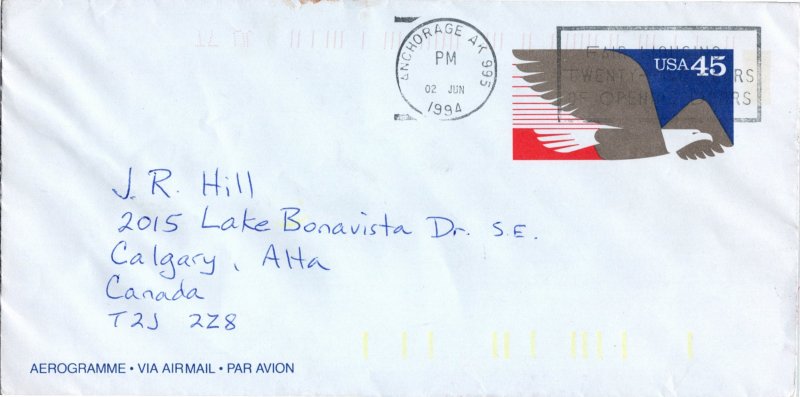 ANCHORAGE AK 995
PM
02 JUN
1994
FAIR HOUSING
TWENTY- YEARS
OF OPEN DOORS
USA 45
J. R. Hill
2015 Lake Bonavista Dr. S.E.
Calgary, Alta
Canada
T2J 2Z8
AEROGRAMME • VIA AIRMAIL • PAR AVION